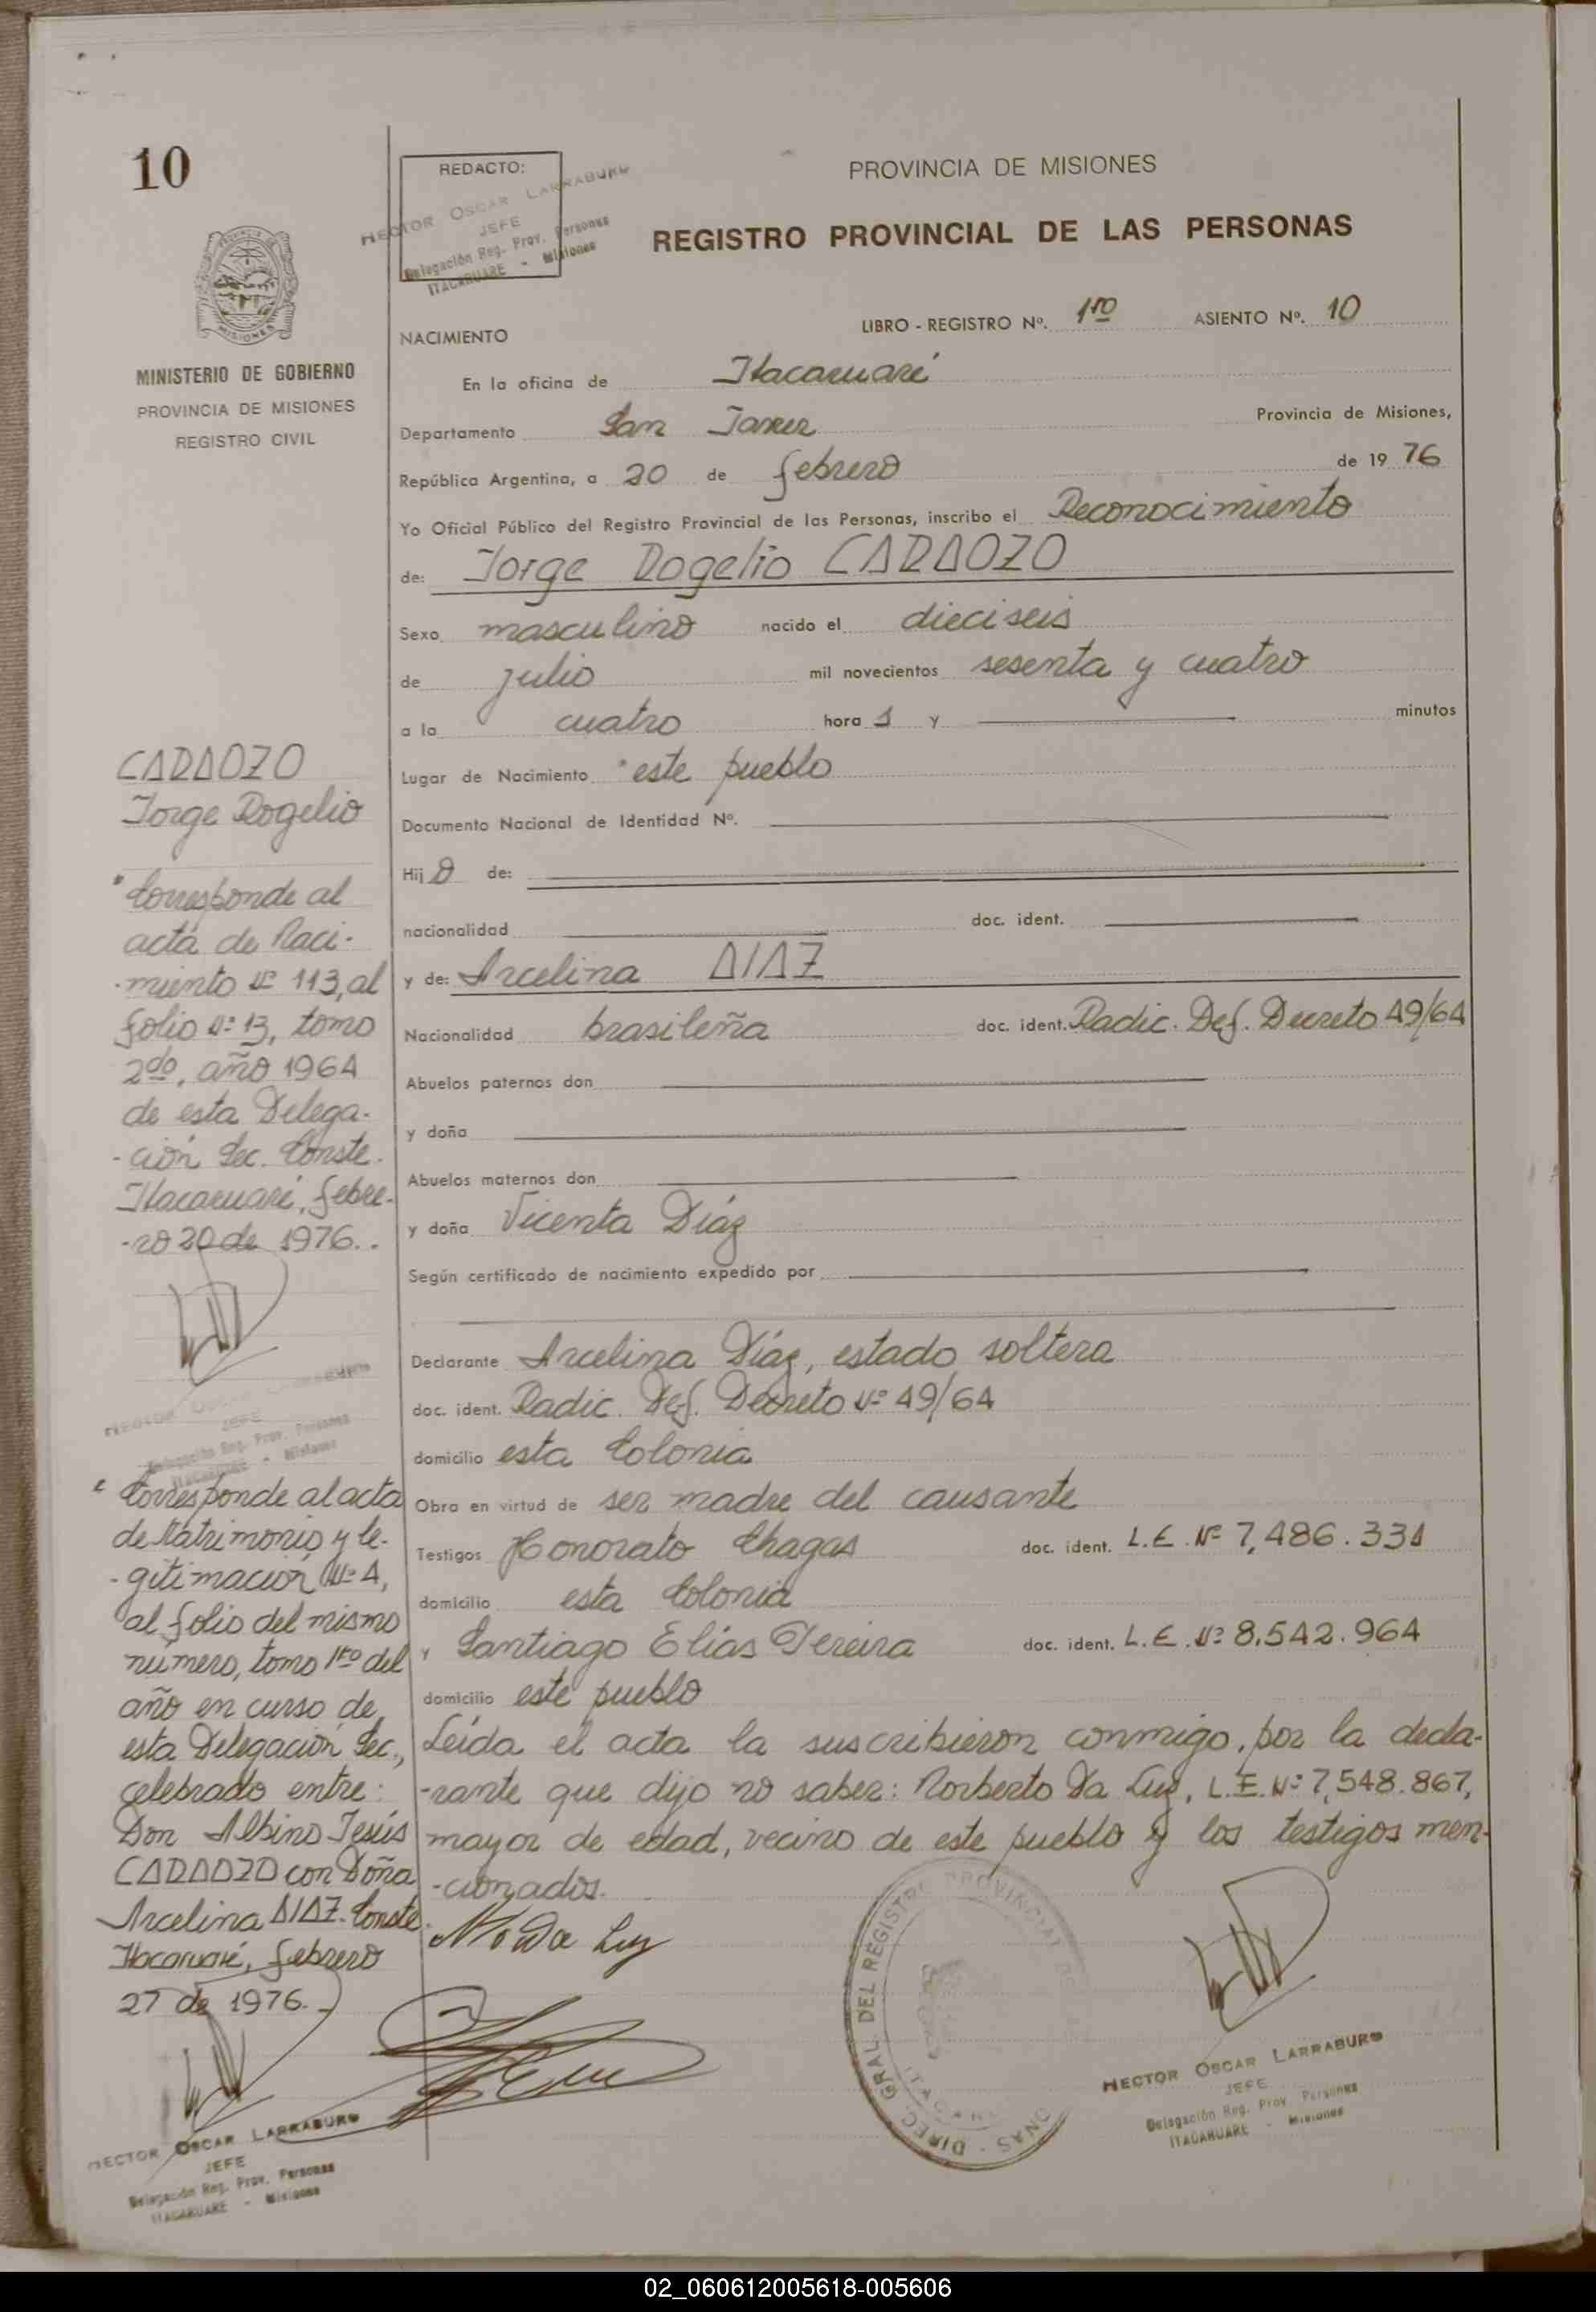 10
REDACTO:
HECTOR OSCAR LARRABURO
JEFE
Delegación Reg. Prov. Personas
ITACARUARE - Misiones
PROVINCIA DE MISIONES
REGISTRO PROVINCIAL DE LAS PERSONAS
MINISTERIO DE GOBIERNO
PROVINCIA DE MISIONES
REGISTRO CIVIL
LIBRO - REGISTRO Nº. 1ro ASIENTO Nº. 10
NACIMIENTO
En la oficina de Itacaruaré
Departamento San Javier Provincia de Misiones,
República Argentina, a 20 de febrero de 19 76
Yo Oficial Público del Registro Provincial de las Personas, inscribo el Reconocimiento
de: Jorge Rogelio CARDOZO
Sexo masculino nacido el dieciseis
de julio mil novecientos sesenta y cuatro
a la cuatro hora s y minutos
Lugar de Nacimiento este pueblo
Documento Nacional de Identidad Nº.
Hij o de:
nacionalidad doc. ident.
y de: Arcelina DIAZ
Nacionalidad brasileña doc. ident. Radic. Def. Decreto 49/64
Abuelos paternos don
y doña
Abuelos maternos don
y doña Vicenta Díaz
Según certificado de nacimiento expedido por
Declarante Arcelina Díaz, estado soltera
doc. ident. Radic. Def. Decreto Nº 49/64
domicilio esta Colonia
Obra en virtud de ser madre del causante
Testigos Honorato Chagas doc. ident. L.E. Nº 7.486.331
domicilio esta Colonia
y Santiago Elías Pereira doc. ident. L.E. Nº 8.542.964
domicilio este pueblo
Leída el acta la suscribieron conmigo, por la decla-
-rante que dijo no saber: Norberto Da Luz, L.E. Nº 7.548.867,
mayor de edad, vecino de este pueblo y los testigos men-
-cionados.
No Da Luz
CARDOZO
Jorge Rogelio
Corresponde al
acta de Naci-
-miento Nº 113, al
folio Nº 13, tomo
2do, año 1964
de esta Delega-
-ción Sec. Conste.
Itacaruaré, febre-
-ro 20 de 1976.
HECTOR OSCAR LARRABURO
JEFE
Delegación Reg. Prov. Personas
ITACARUARE - Misiones
Corresponde al acta
de Matrimonio y le-
-gitimación Nº 4,
al folio del mismo
número, tomo 1ro del
año en curso de
esta Delegación Sec.,
celebrado entre:
Don Albino Jesús
CARDOZO con Doña
Arcelina DIAZ. Conste.
Itacaruaré, febrero
27 de 1976.
HECTOR OSCAR LARRABURO
JEFE
Delegación Reg. Prov. Personas
ITACARUARE - Misiones
DIREC. GRAL. DEL REGISTRO PROVINCIAL DE
HECTOR OSCAR LARRABURO
JEFE
Delegación Reg. Prov. Personas
ITACARUARE - Misiones
02_060612005618-005606